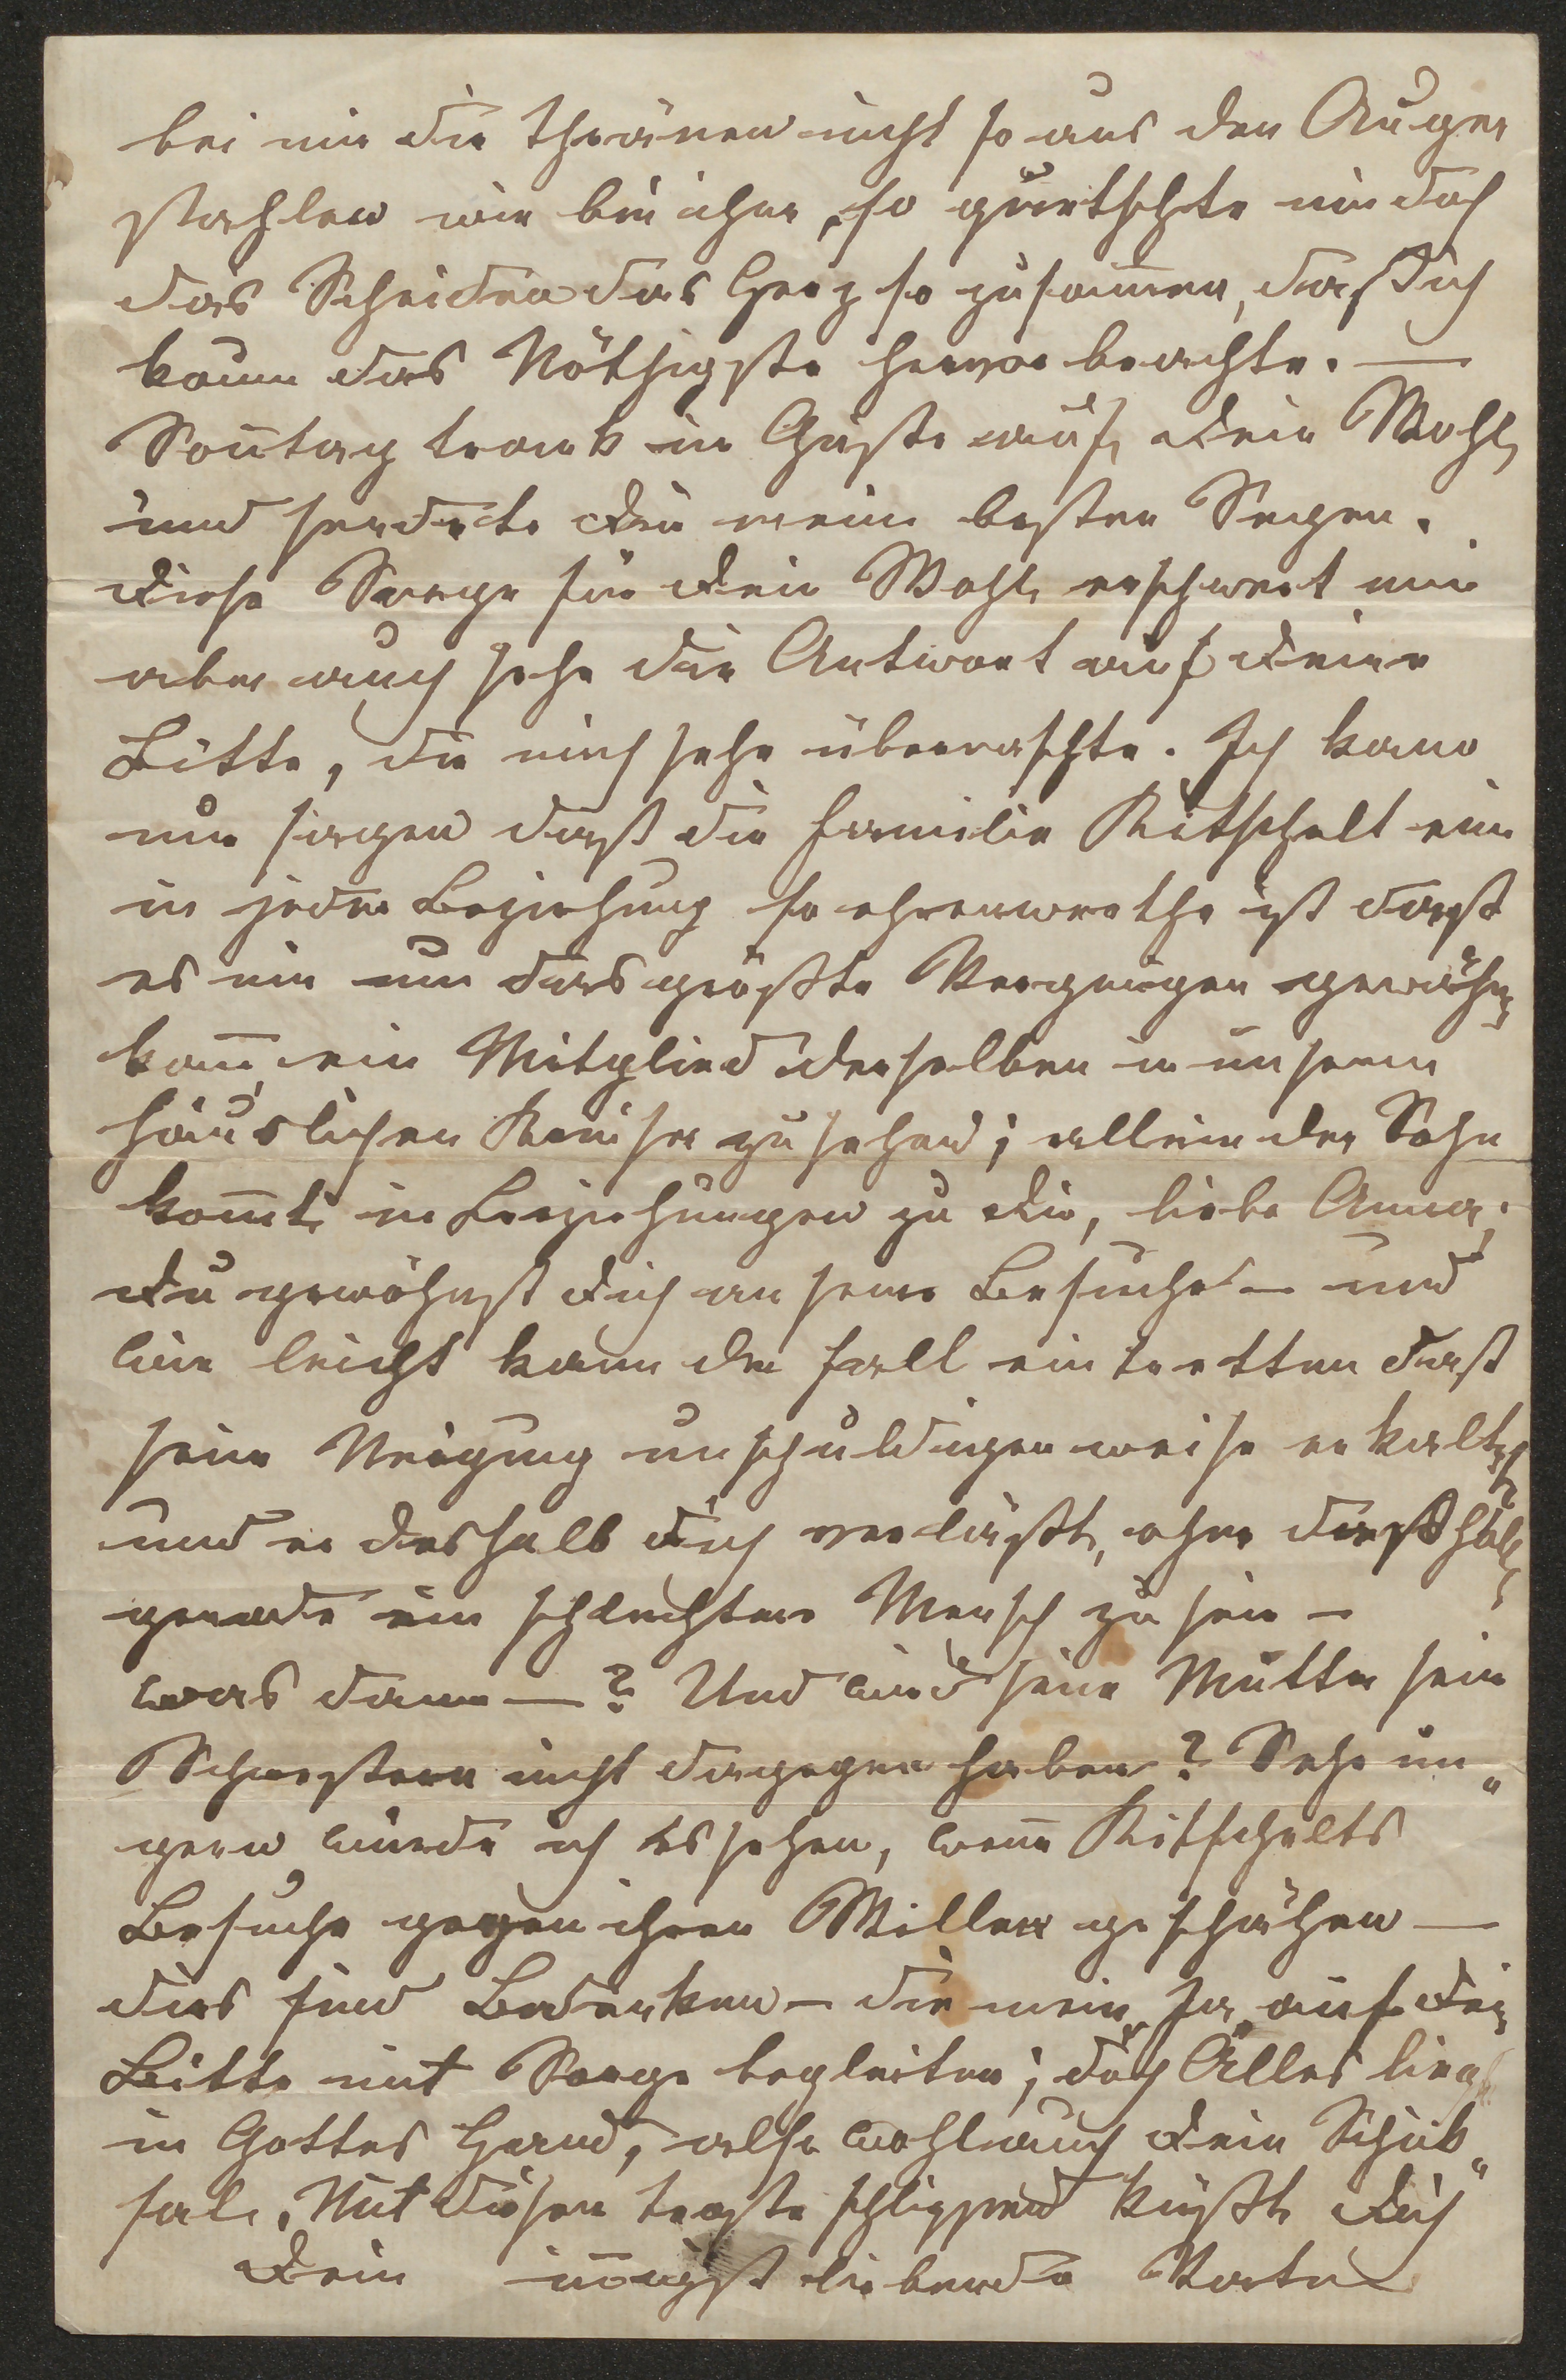 bei mir die Thränen nicht so aus den Augen
stahlen wie bei ihnen, so quetschte mir doch
das Scheiden das Herz so zusam̄en, daß ich
kaum das Nöthigste hervor brachte. —
Son̄tag trank im Geiste auf Dein Wohl,
und sendete Dir meine besten Segen.
Diese Sorge für Dein Wohl, erschwert mir
aber auch sehr die Antwort auf Deine
Bitte, die mich sehr überraschte. Ich kann
nur sagen daß die Familie Kitschelt eine
in jeder Beziehung so ehrenwerthe ist daß
es mir nur das größte Vergnügen gewähren
kan̄, ein Mitglied derselben in unserem
häuslichen Kreise zu sehen; allein der Sohn
kom̄t in Beziehungen zu Dir, liebe Anna;
Du gewöhnst Dich an seine Besuche — und
wie leicht kann der Fall eintretten daß
seine Neigung unschuldigerweise erkaltet
und er deshalb Dich verläßt, ohne deßhalb
gerade ein schlechter Mensch zu sein —
was dann —? Und wird seine Mutter seine
Schwestern nicht dagegen haben? Sehr un„
gern würde ich es sehen, wen̄ Kitschelts
Besuche gegen ihren Willen geschähen —
dies sind Bedenken — die mein Ja auf Deine
Bitte mit Sorge begleiten; doch Alles liegt
in Gottes Hand, also wohl auch Dein Schick„
sal. Mit diesem Troste schließend küßt Dich
Dein in̄igst liebender Vater